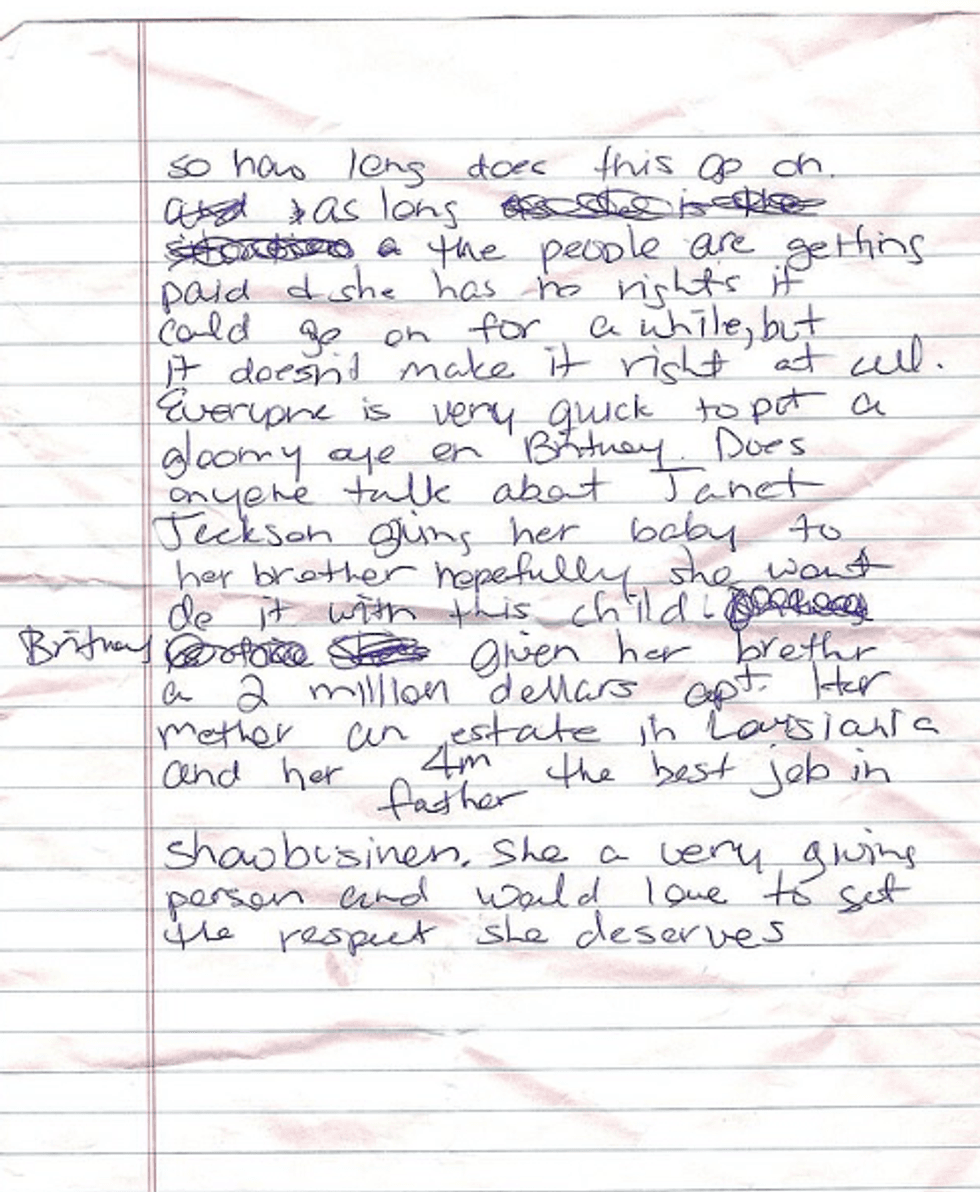 so how long does this go on.
and as long as she is the
situation a the people are getting
paid & she has no rights it
could go on for a while, but
it doesn't make it right at all.
Everyone is very quick to put a
gloomy aye on Britney. Does
anyone talk about Janet
Jeckson giving her baby to
her brother hopefully she wont
do it with this child.
Britney given her brother
a 2 million dollars apt. Her
mother an estate in Louisiania
and her 4m the best job in
father
showbusiness. She a very giving
person and would love to get
the respect she deserves